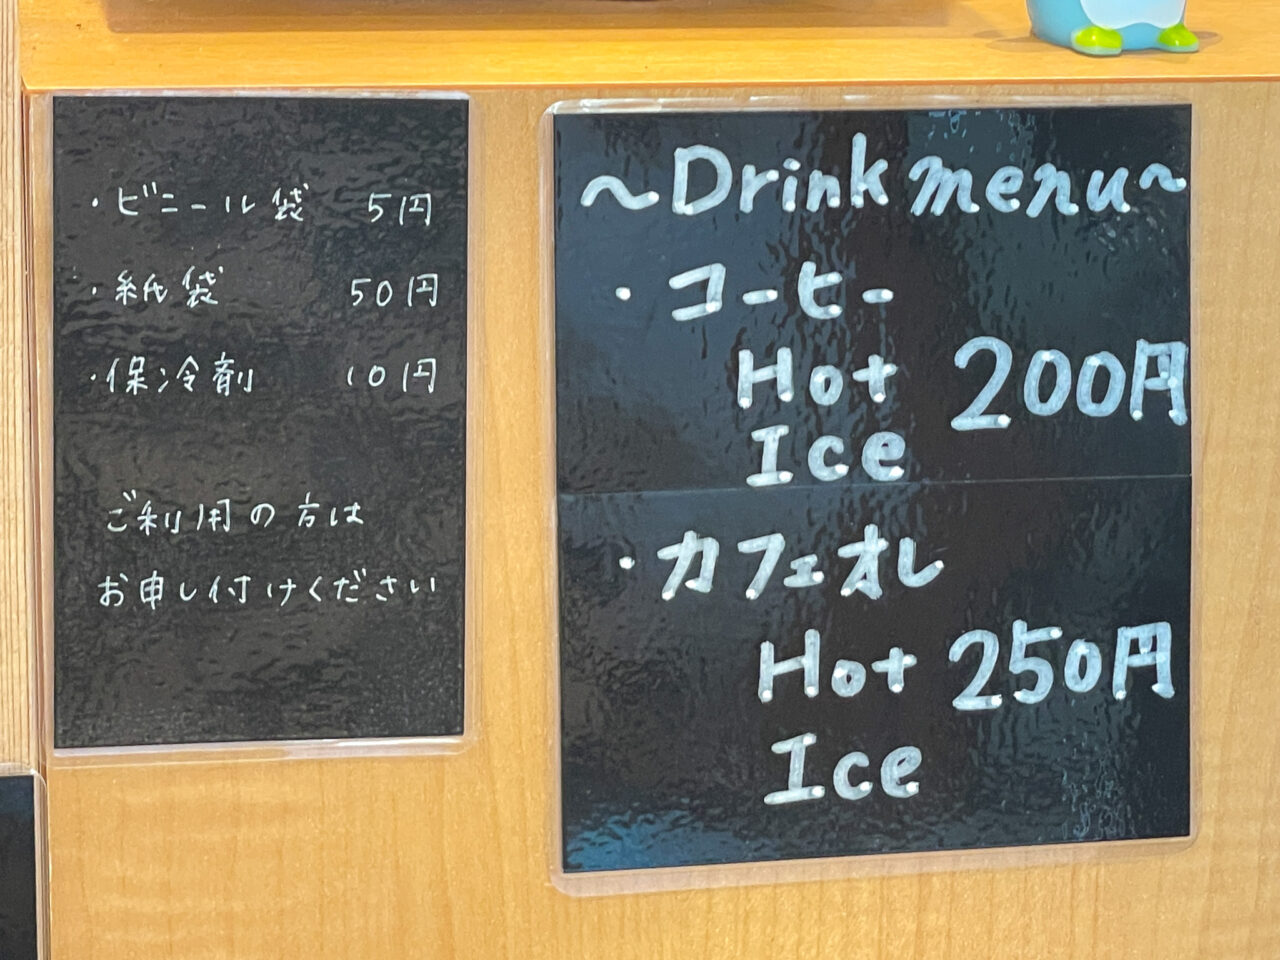 ・ビニール袋 5円
・紙袋 50円
・保冷剤 10円
ご利用の方は
お申し付けください
～Drink menu～
・コーヒー
Hot 200円
Ice
・カフェオレ
Hot 250円
Ice